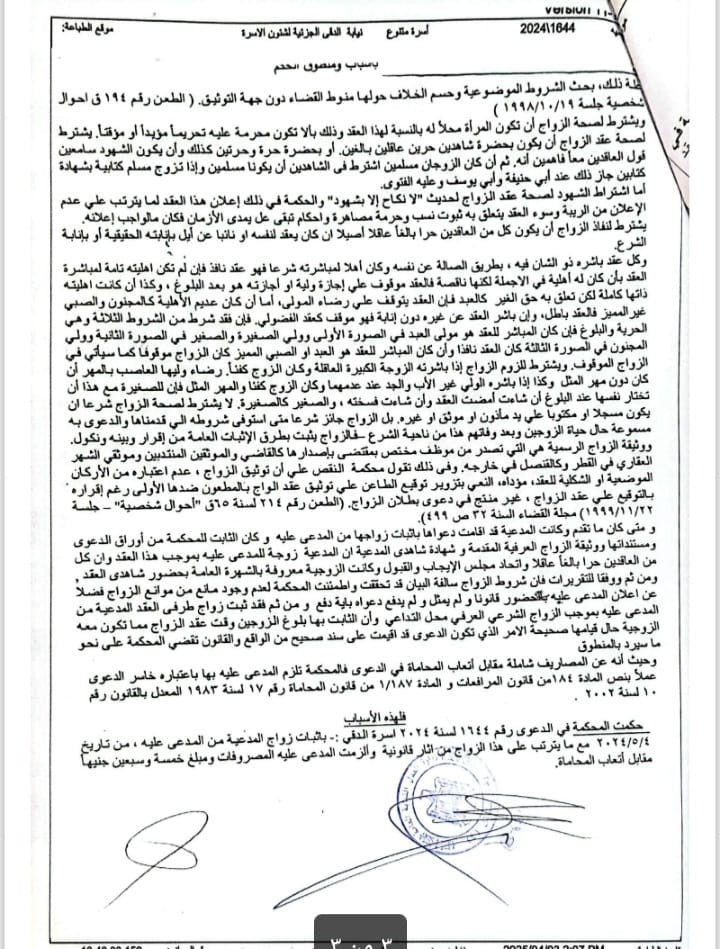 Version
موقع الطباعة:
نيابة الدقى الجزئية لشئون الاسرة
أسرة متنوع
2024\1644
باسباب ومنطوق الحكم
ذلك، بحث الشروط الموضوعية وحسم الخلاف حولها منوط القضاء دون جهة التوثيق. ( الطعن رقم ١٩٤ ق احوال
شخصية جلسة ١٩٩٨/١٠/١٩)
ويشترط لصحة الزواج أن تكون المرأة محلاً له بالنسبة لهذا العقد وذلك بألا تكون محرمة عليه تحريماً مؤبداً أو مؤقتاً. يشترط
لصحة عقد الزواج أن يكون بحضرة شاهدين حرين عاقلين بالغين. أو بحضرة حرة وحرتين كذلك وأن يكون الشهود سامعين
قول العاقدين معاً فاهمين أنه. ثم أن كان الزوجان مسلمين اشترط فى الشاهدين أن يكونا مسلمين وإذا تزوج مسلم كتابية بشهادة
كتابين جاز ذلك عند أبي حنيفة وأبي يوسف وعليه الفتوى.
أما اشتراط الشهود لصحة عقد الزواج لحديث "لا نكاح إلا بشهود" والحكمة في ذلك إعلان هذا العقد لما يترتب علي عدم
الإعلان من الريبة وسوء العقد يتعلق به ثبوت نسب وحرمة مصاهرة واحكام تبقى عل يمدى الأزمان فكان مالواجب إعلانه.
يشترط لنفاذ الزواج أن يكون كل من العاقدين حرا بالغاً عاقلا أصيلا ان كان يعقد لنفسه او نائبا عن أيل بإنابته الحقيقية أو بإنابة
الشرع.
وكل عقد باشره ذو الشان فيه ، بطريق الصالة عن نفسه وكان أهلا لمباشرته شرعا فهو عقد نافذ فإن لم تكن اهليته تامة لمباشرة
العقد بأن كان له أهلية في الاجملة لكنها ناقصة فالعقد موقوف علي إجازة ولية او أجازته هو بعد البلوغ ، وكذا أن كانت اهليته
ذاتها كاملة لكن تعلق به حق الغير كالعبد فإن العقد يتوقف علي رضاء المولى، أما أن كان عديم الأهلية كالمجنون والصبي
غير المميز فالعقد باطل، وإن باشر العقد عن غيره دون إنابة فهو موقف كعقد الفضولي. فإن فقد شرط من الشروط الثلاثة وهي
الحرية والبلوغ فإن كان المباشر للعقد هو مولى العبد في الصورة الأولى وولي الصغيرة والصغير في الصورة الثانية وولي
المجنون في الصورة الثالثة كان العقد نافذا وأن كان المباشر للعقد هو العبد او الصبي المميز كان الزواج موقوفا كما سيأتي في
الزواج الموقوف. ويشترط للزوم الزواج إذا باشرته الزوجة الكبيرة العاقلة وكان الزوج كفئاً. رضاء وليها العاصب بالمهر أن
كان دون مهر المثل وكذا إذا باشره الولي غير الأب والجد عند عدمهما وكان الزوج كفئا والمهر المثل فإن للصغيرة مع هذا أن
تختار نفسها عند البلوغ أن شاءت أمضت العقد وأن شاءت فسخته ، والصغير كالصغيرة. لا يشترط لصحة الزواج شرعا ان
يكون مسجلا او مكتوبا علي يد مأذون او موثق او غيره. بل الزواج جائز شرعا متى استوفى شروطه الي قدمناها والدعوى به
مسموعة حال حياة الزوجين وبعد وفاتهم هذا من ناحية الشرع – فالزواج يثبت بطرق الإثبات العامة من إقرار وبينه ونكول.
ووثيقة الزواج الرسمية هي التي تصدر من موظف مختص بمقتضى بإصدارها كالقاضي والموثقين المنتدبين وموثقي الشهر
العقاري في القطر وكالقنصل في خارجه. وفى ذلك تقول محكمة النقص علي أن توثيق الزواج ، عدم اعتباره من الأركان
الموضوعية او الشكلية للعقد، مؤداه، النعي بتزوير توقيع الطاعن علي توثيق عقد الواج بالمطعون ضدها الأولى رغم إقراره
بالتوقيع علي عقد الزواج ، غير منتج في دعوى بطلان الزواج. (الطعن رقم ٢١٤ لسنة ٦٥ق "أحوال شخصية" – جلسة
١٩٩٩/١١/٢٢) مجلة القضاء السنة ٣٢ ص ٤٩٩).
و متى كان ما تقدم وكانت المدعية قد اقامت دعواها باثبات زواجها من المدعى عليه و كان الثابت للمحكمة من أوراق الدعوى
ومستنداتها ووثيقة الزواج العرفية المقدمة و شهادة شاهدى المدعية ان المدعية زوجة للمدعى عليه بموجب هذا العقد وان كل
من العاقدين حرا بالغاً عاقلا واتحاد مجلس الإيجاب والقبول وكانت الزوجية معروفة بالشهرة العامة بحضور شاهدى العقد ,
ومن ثم ووفقا للتقريرات فإن شروط الزواج سالفة البيان قد تحققت واطمئنت المحكمة لعدم وجود مانع من موانع الزواج فضلاً
عن اعلان المدعى عليه بالحضور قانونا و لم يمثل و لم يدفع دعواه باية دفع و من ثم فقد ثبت زواج طرفى العقد المدعية من
المدعى عليه بموجب الزواج الشرعي العرفي محل التداعي وأن الثابت بها بلوغ الزوجين وقت عقد الزواج مما تكون معه
الزوجية حال قيامها صحيحة الامر الذي تكون الدعوى قد اقيمت على سند صحيح من الواقع والقانون تقضي المحكمة على نحو
ما سيرد بالمنطوق
وحيث أنه عن المصاريف شاملة مقابل أتعاب المحاماة في الدعوى فالمحكمة تلزم المدعى عليه بها باعتباره خاسر الدعوى
عملاً بنص المادة ١٨٤من قانون المرافعات و المادة ١/١٨٧ من قانون المحاماة رقم ١٧ لسنة ١٩٨٣ المعدل بالقانون رقم
١٠ لسنة ٢٠٠٢ .
فلهذه الأسباب
حكمت المحكمة في الدعوى رقم ١٦٤٤ لسنة ٢٠٢٤ اسرة الدقي :- باثبات زواج المدعية من المدعى عليه ، من تاريخ
٢٠٢٤/٥/٤ مع ما يترتب على هذا الزواج من اثار قانونية وألزمت المدعى عليه المصروفات ومبلغ خمسة وسبعين جنيها
مقابل أتعاب المحاماة.
٣ من ٣